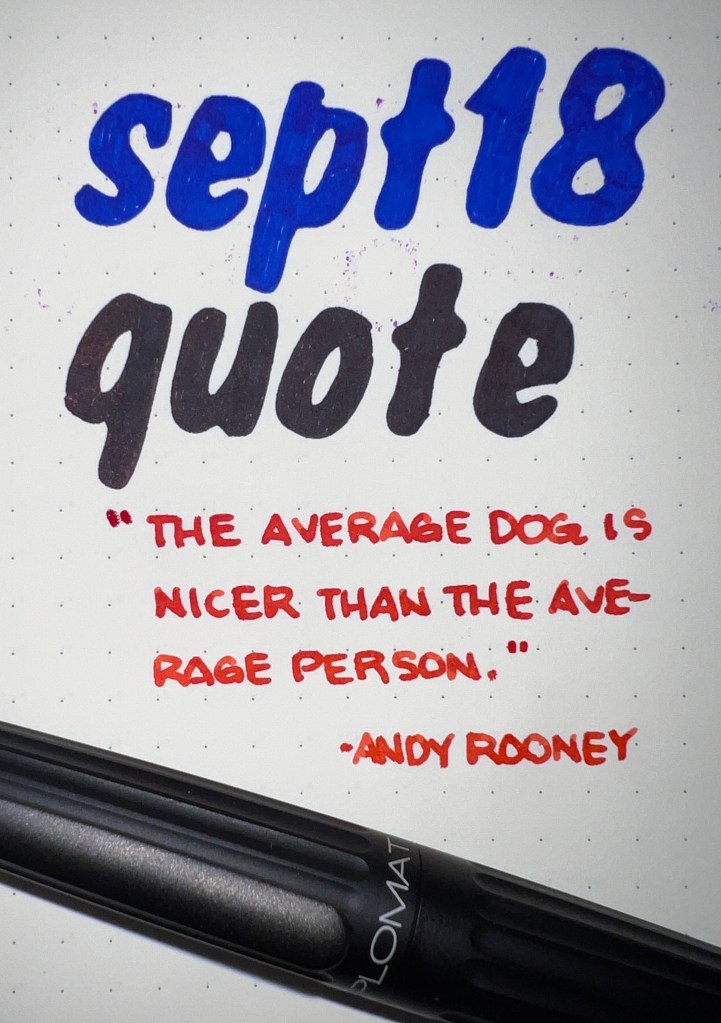 sept18
quote
"THE AVERAGE DOG IS
NICER THAN THE AVE-
RAGE PERSON."
-ANDY ROONEY
PLOMAT